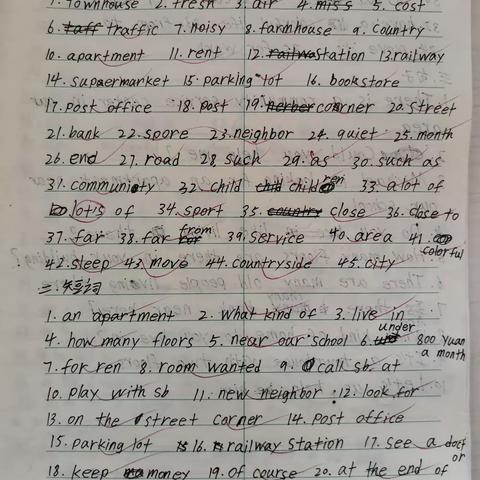 1. townhouse 2. fresh 3. air 4. miss 5. cost
6. traffic 7. noisy 8. farmhouse 9. country
10. apartment 11. rent 12. station 13. railway
14. supermarket 15. parking lot 16. bookstore
17. post office 18. post 19. corner 20. street
21. bank 22. spore 23. neighbor 24. quiet 25. month
26. end 27. road 28. such 29. as 30. such as
31. community 32. child children 33. a lot of
lots of 34. sport 35. close 36. close to
37. far 38. far from 39. service 40. area 41. colorful
42. sleep 43. move 44. countryside 45. city
三.短词
1. an apartment 2. what kind of 3. live in
4. how many floors 5. near our school 6. under 800 yuan a month
7. for ren 8. room wanted 9. call sb. at
10. play with sb 11. new neighbor 12. look for
13. on the street corner 14. post office
15. parking lot 16. railway station 17. see a doctor
18. keep money 19. of course 20. at the end of